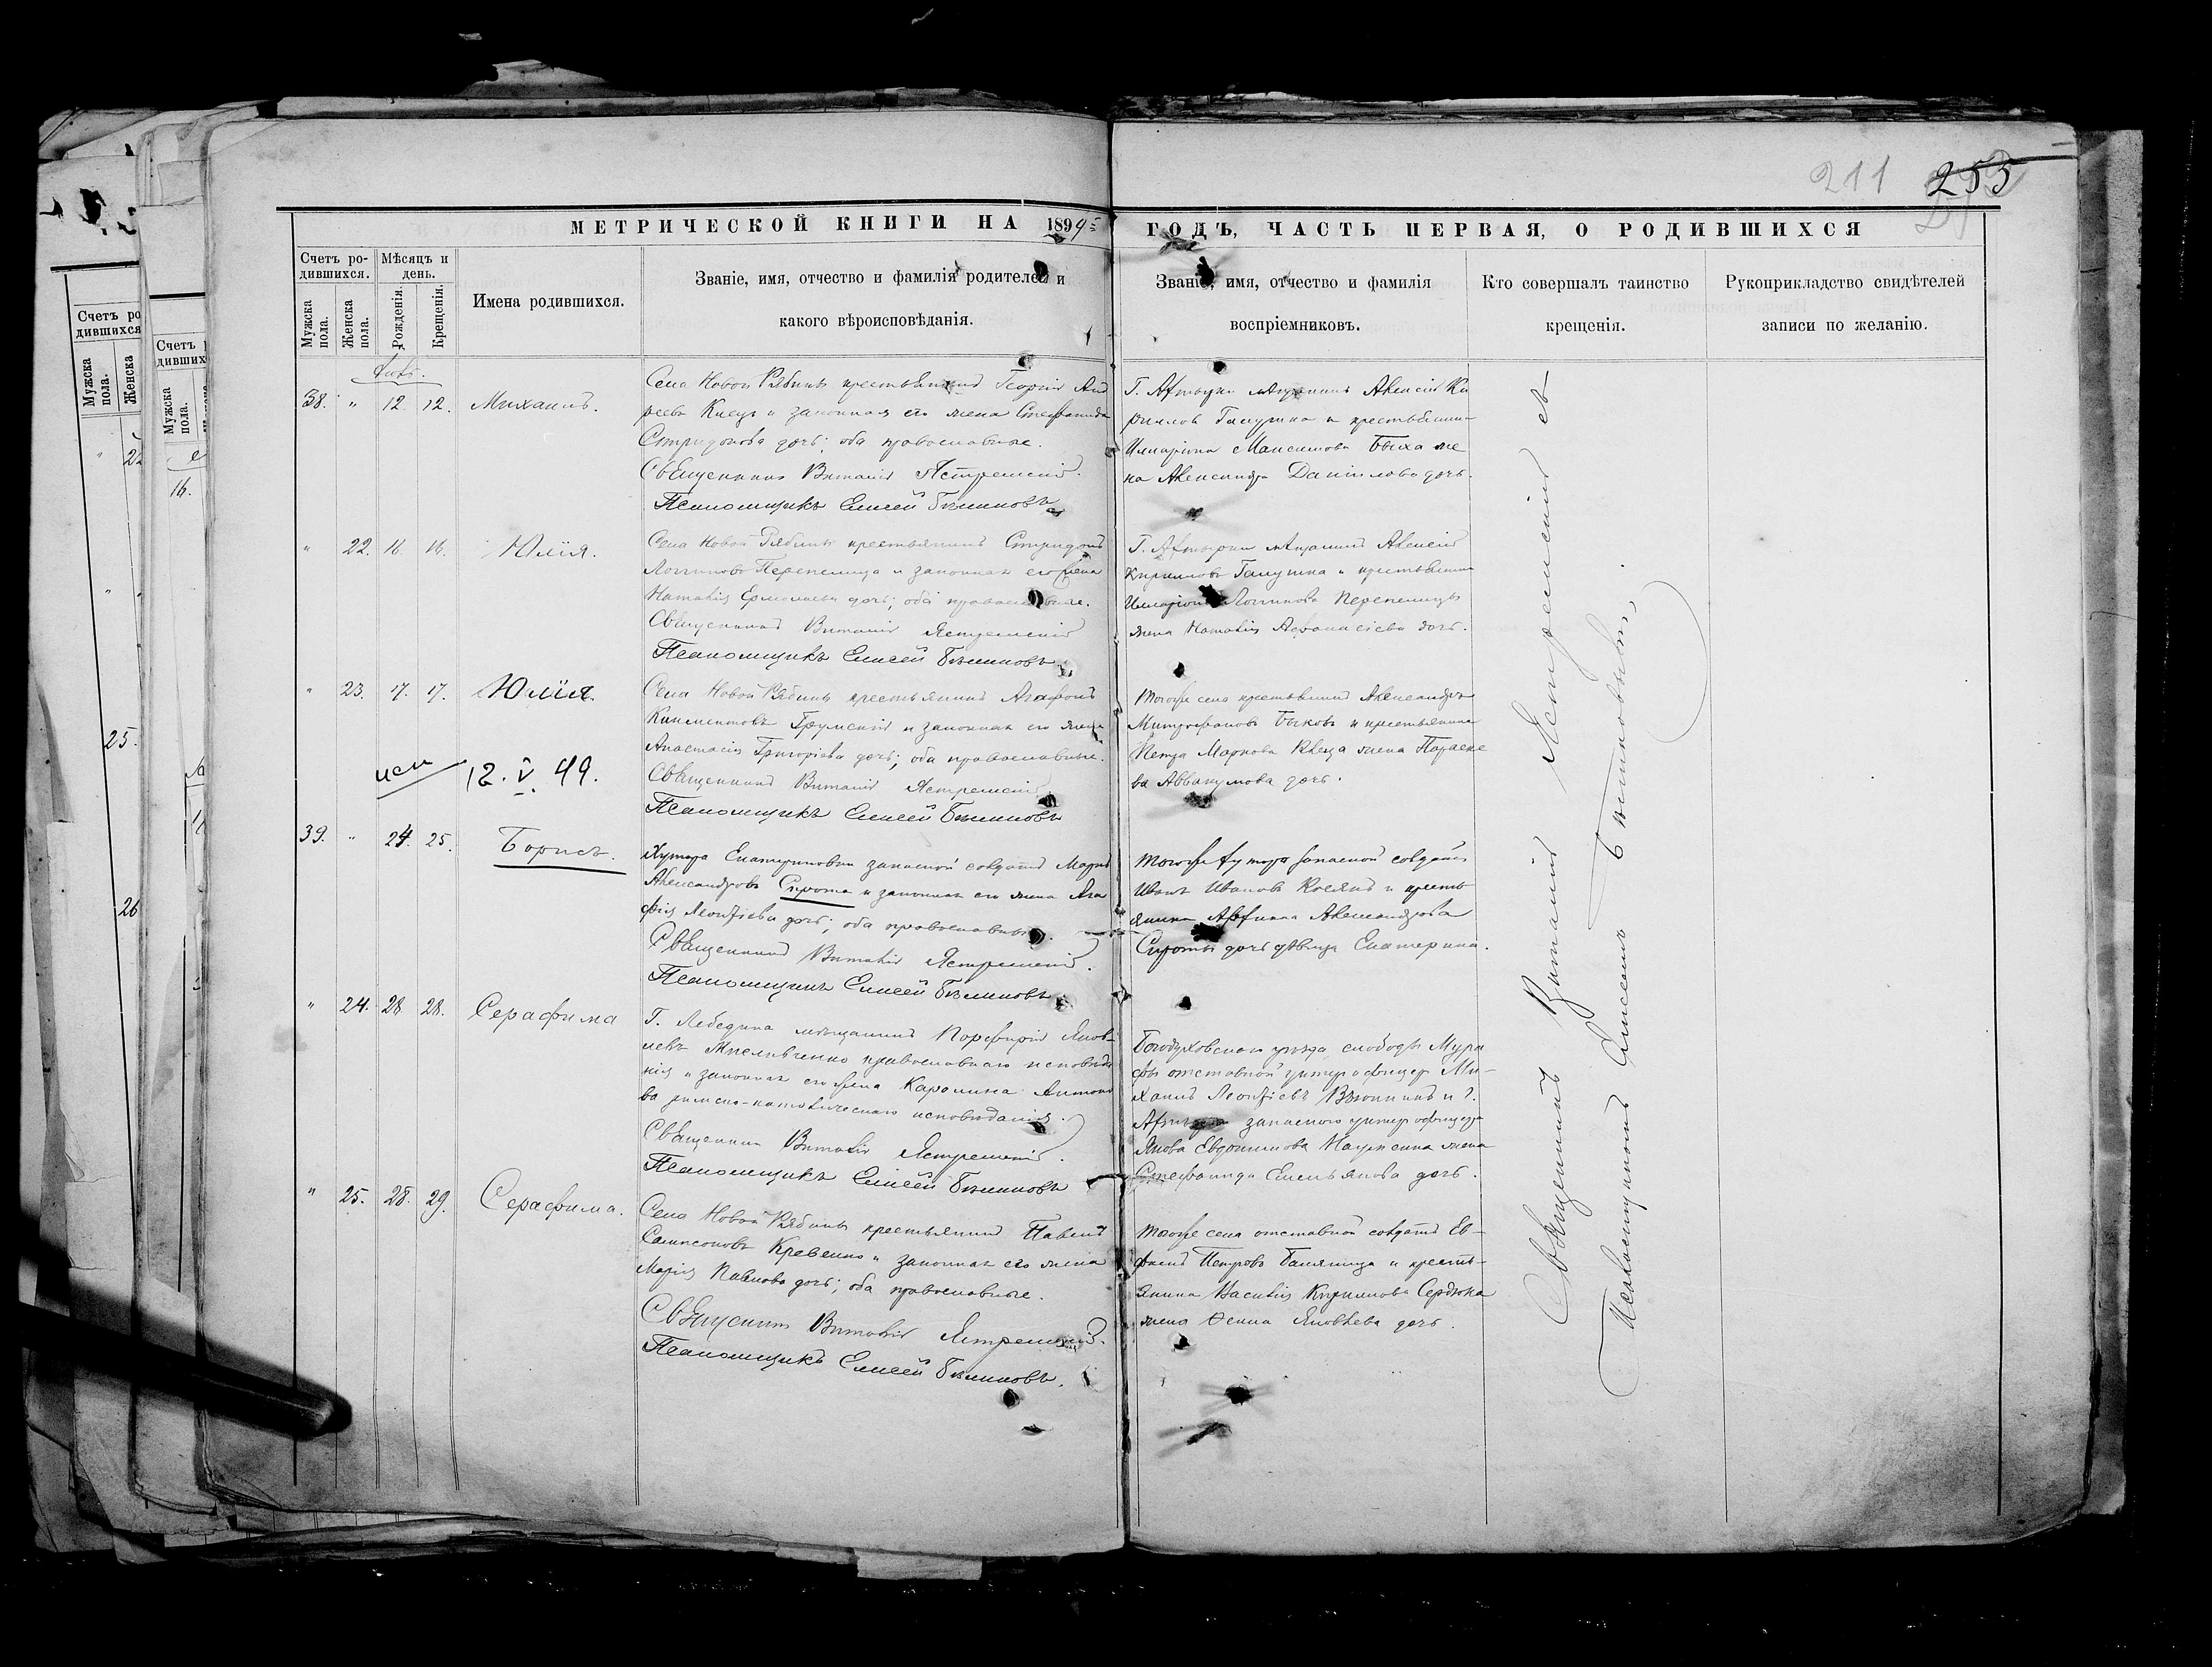 211 255
МЕТРИЧЕСКОЙ КНИГИ НА 1894 ГОДЪ, ЧАСТЬ ПЕРВАЯ, О РОДИВШИХСЯ
Счетъ родившихся.
Мужска пола.
Женска пола.
Мѣсяцъ и день.
Рожденія.
Крещенія.
Имена родившихся.
Званіе, имя, отчество и фамилія родителей и
какого вѣроисповѣданія.
Званіе, имя, отчество и фамилія
воспріемниковъ.
Кто совершалъ таинство
крещенія.
Рукоприкладство свидѣтелей
записи по желанію.
38. " 12. 12. Михаилъ.
Села Новой Рябины крестьянинъ Георгій Анд
реевъ и законная его жена Стефанида
Спиридонова дочь; оба православные.
Священникъ Виталій Ястремскій.
Псаломщикъ Елисей Бѣликовъ
Г. Ахтырки мѣщанинъ Алексій Ки
риловъ Галушка и крестьянина
Илларіона Максимова Быка же
на Александра Даніилова дочь.
" 22. 16. 16. Юлія.
Села Новой Рябины крестьянинъ Спиридонъ
Логиновъ Перепелица и законная его жена
Наталія Ермолаева дочь; оба православные.
Священникъ Виталій Ястремскій
Псаломщикъ Елисей Бѣликовъ
Г. Ахтырки мѣщанинъ Алексій
Кириловъ Галушка и крестьянина
Илларіона Логинова Перепелицы
жена Наталія Аѳанасіева дочь.
" 23. 17. 17. Юлія.
Села Новой Рябины крестьянинъ Агафонъ
Климентовъ и законная его жена
Анастасія Григоріева дочь; оба православные.
Священникъ Виталій Ястремскій
Псаломщикъ Елисей Бѣликовъ
Тогоже села крестьянинъ Александръ
Митрофановъ Быковъ и крестьянина
Петра Маркова жена Параске
ва Аввакумова дочь.
12. V. 49.
39. " 24. 25. Борисъ.
Хутора Екатериновки запасной солдатъ Маркъ
Александровъ Сирота и законная его жена Ага
фія Леонтіева дочь; оба православные.
Священникъ Виталій Ястремскій.
Псаломщикъ Елисей Бѣликовъ
Тогоже хутора запасной солдатъ
Иванъ Ивановъ и кресть
янина Александрова
Сироты дочь дѣвица Екатерина.
" 24. 28. 28. Серафима
Г. Лебедина мѣщанинъ Порфирій Яков-
левъ православнаго исповѣда
нія и законная его жена Каролина Антоно
ва римско-католическаго исповѣданія.
Священникъ Виталій Ястремскій.
Псаломщикъ Елисей Бѣликовъ
Богодуховскаго уѣзда слободы Мура
фы отставной унтеръ офицеръ Ми-
хаилъ Леонтіевъ и г.
Ахтырки запаснаго унтеръ офицера
Якова Евдокимова жена
Стефанида Емельянова дочь.
" 25. 28. 29. Серафима.
Села Новой Рябины крестьянинъ Павелъ
Сампсоновъ и законная его жена
Марія Павлова дочь; оба православные.
Священникъ Виталій Ястремскій.
Псаломщикъ Елисей Бѣликовъ.
Тогоже села отставной солдатъ Ев-
фимъ Петровъ и кресть-
янина Василія Кирилова Сердюка
жена Яковлева дочь.
Священникъ Виталій Ястремскій съ
Псаломщикомъ Елисеемъ Бѣликовымъ.
Счетъ ро
дившихся
Мужска пола.
Женска
25.
26
Мужска пола.
16.